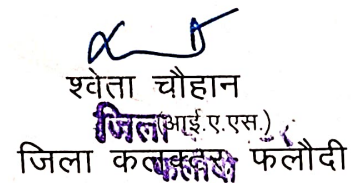 श्वेता चौहान
जिला (आई.ए.एस.)
जिला कलक्टर, फलौदी